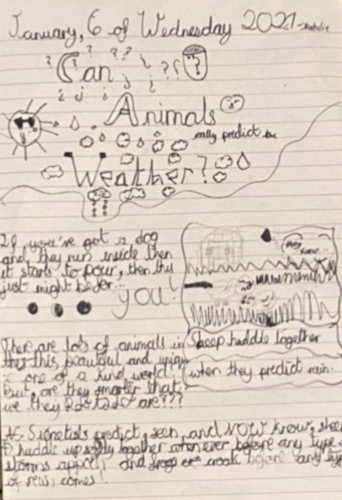 January, 6 of Wednesday 2021
Can
Animals
really predict the
Weather?
If you've got a dog
and they run inside then
it starts to pour, then this
just might be for...
you!
they
know...
There are lots of animals in
this beautiful and unique
one of a kind world!
but, are they smarter that
we they are???
Sheep huddle together
when they predict rain.
predict, seen, and NOW know, sheep
huddle up before any type
storms and before any type
of comes!